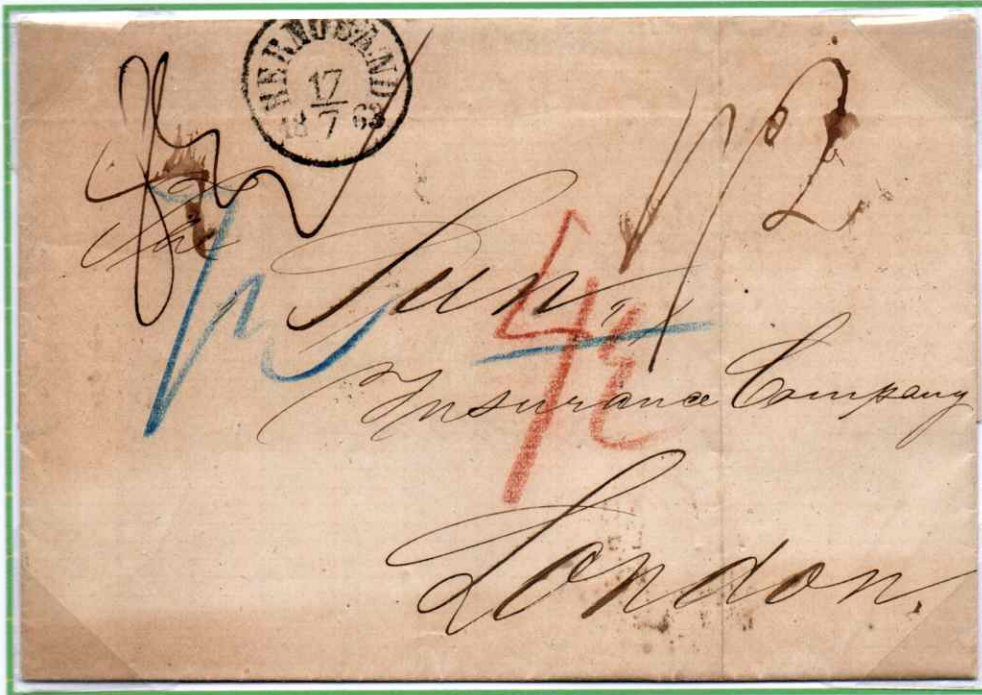 HERNOSAND
17
18 7 63
The
Sun,
Insurance Company
London.
1/2